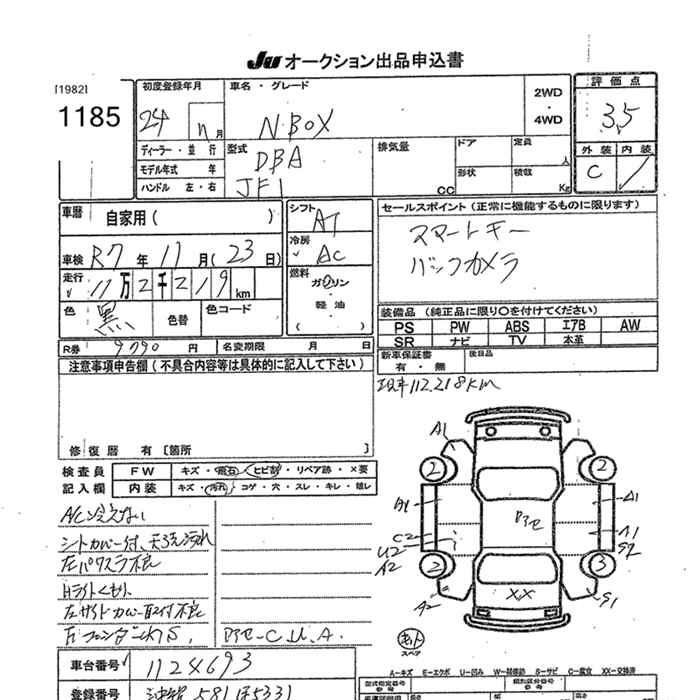 JU オークション出品申込書
[1982]
1185
初度登録年月
24 n 月
車名・グレード
N-BOX
2WD
・
4WD
評価点
3.5
外装 内装
C
ディーラー・並行
モデル年式 年
ハンドル 左・右
型式
DBA
JF1
排気量
CC
ドア
定員
人
形状
積数
Kg
車歴 自家用( )
車検 R7年11月(23日)
走行 11万2千219km
色 黒 色替 色コード
R券 9790円 名変期限 月 日
シフト
AT
冷房
AC
燃料
ガソリン
・
軽油
( )
セールスポイント(正常に機能するものに限ります)
スマートキー
バックカメラ
装備品(純正品に限り〇を付けてください)
PS PW ABS エアB AW
SR ナビ TV 本革
新車保証書
有・無
後日品
現车112.218KM
注意事項申告欄(不具合内容等は具体的に記入して下さい)
修復歴 有〔箇所 〕
検査員 FW キズ・飛石・ヒビ割・リペア跡・×要
記入欄 内装 キズ・汚れ・コゲ・穴・スレ・キレ・破レ
A/C冷えない
シートカバー付、天張汚れ
左パワスラ不良
Hライトくもり
左サイドカバー取付不良
右フェンダー
ドアセ-C.U.A.
A1
2 2
A1 A1
ドアセ
C2 A1
U2 S2
A2
2 3
A2 XX S1
キット
スペア
A-キズ E-エクボ U-凹み W-補修跡 S-サビ C-腐食 XX-交換済
車台番号 1124693
登録番号 581 ほ5331
型式指定番号
参考
類別区分番号
参考